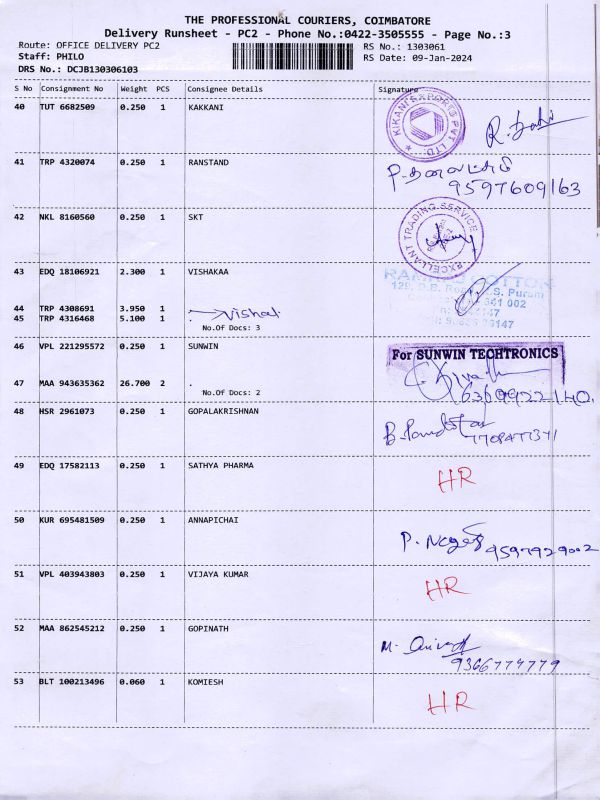 THE PROFESSIONAL COURIERS, COIMBATORE
Delivery Runsheet - PC2 - Phone No.:0422-3505555 - Page No.:3
Route: OFFICE DELIVERY PC2 RS No.: 1303061
Staff: PHILO RS Date: 09-Jan-2024
DRS No.: DCJB130306103
S No Consignment No Weight PCS Consignee Details Signature
40 TUT 6682509 0.250 1 KAKKANI
KIKANI EXPORTS PVT LTD.
41 TRP 4320074 0.250 1 RANSTAND
9597609163
42 NKL 8160560 0.250 1 SKT
EXCELLANT TRADING SERVICE
43 EDQ 18106921 2.300 1 VISHAKAA
COTTON
S. Puram
641 002
44 TRP 4308691 3.950 1 Vishal
45 TRP 4316468 5.100 1 .
No.Of Docs: 3
46 VPL 221295572 0.250 1 SUNWIN
For SUNWIN TECHTRONICS
47 MAA 943635362 26.700 2 .
No.Of Docs: 2
48 HSR 2961073 0.250 1 GOPALAKRISHNAN
49 EDQ 17582113 0.250 1 SATHYA PHARMA HR
50 KUR 695481509 0.250 1 ANNAPICHAI
9597929002
51 VPL 403943803 0.250 1 VIJAYA KUMAR HR
52 MAA 862545212 0.250 1 GOPINATH
9366777779
53 BLT 100213496 0.060 1 KOMIESH HR